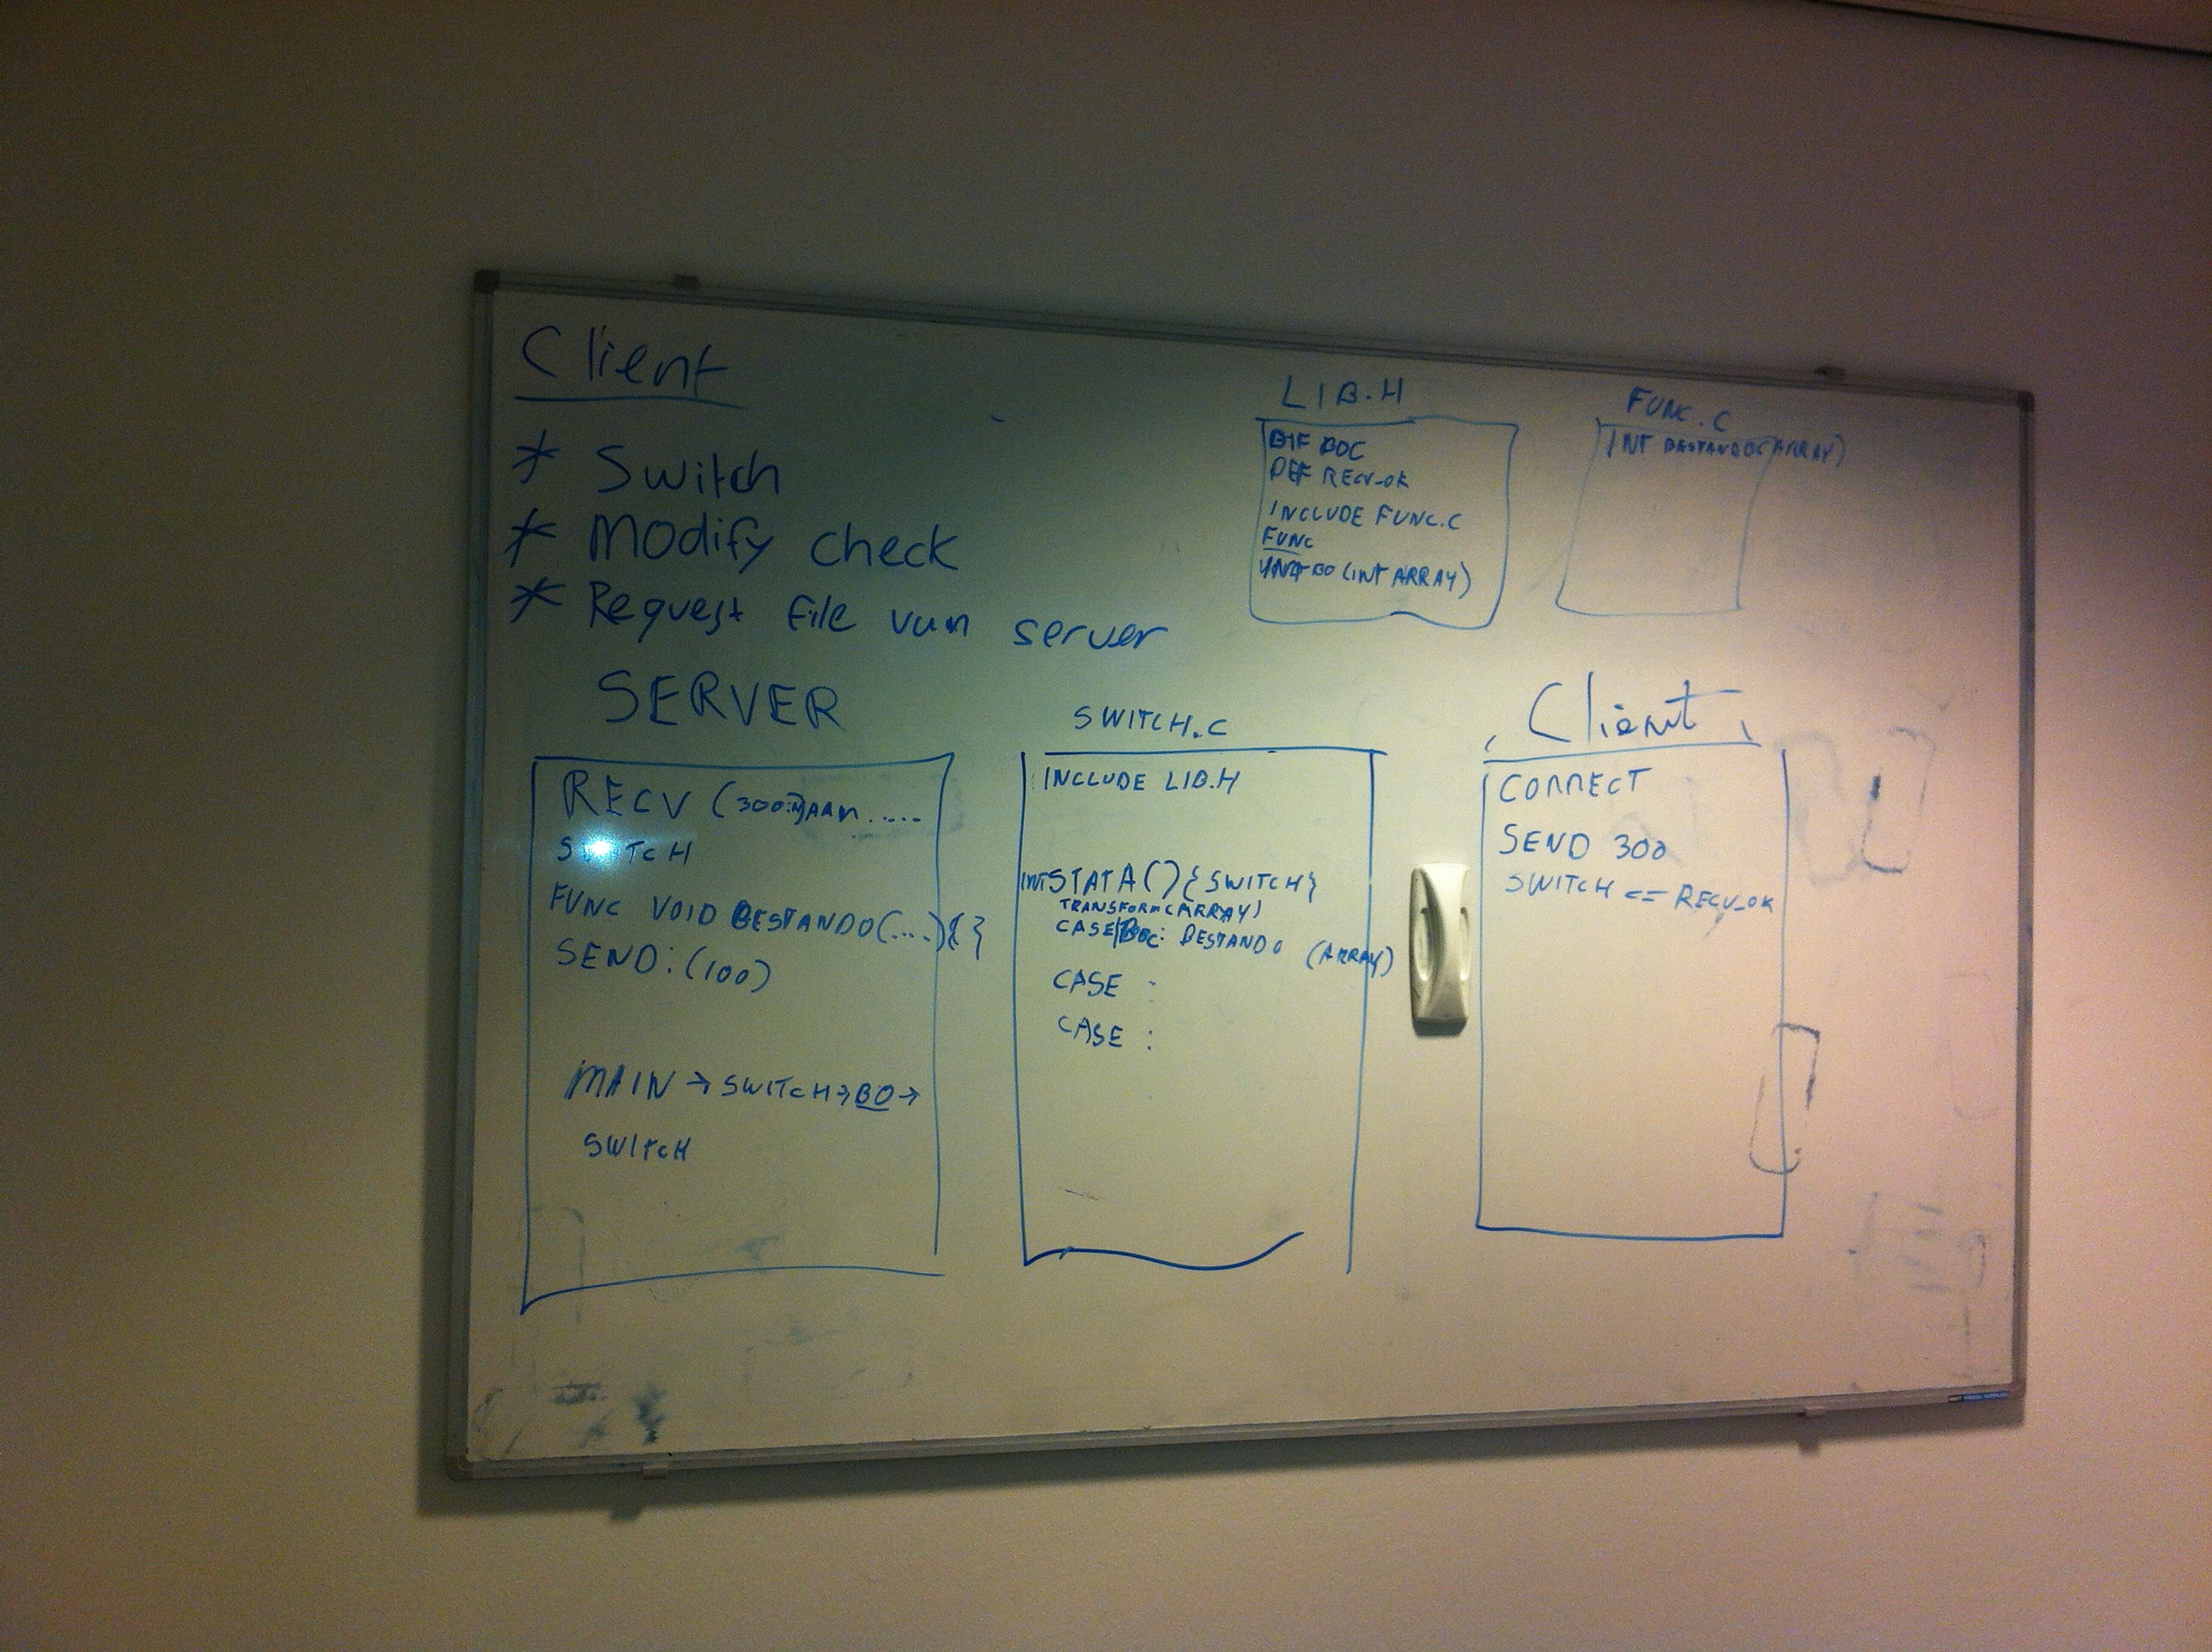 Client
* Switch
* Modify check
* Request file van server
LIB.H
DEF RECV_OK
INCLUDE FUNC.C
FUNC
(INT ARRAY)
FUNC.C
INT BESTANDO(ARRAY)
SERVER
RECV (300:
SWITCH
FUNC VOID BESTANDO(....){}
SEND:(100)
MAIN → SWITCH → BO →
SWITCH
SWITCH.C
INCLUDE LIB.H
INT STATA(){SWITCH}
TRANSFORM(ARRAY)
CASE BESTANDO (ARRAY)
CASE :
CASE :
Client
CONNECT
SEND 300
SWITCH == RECV_OK